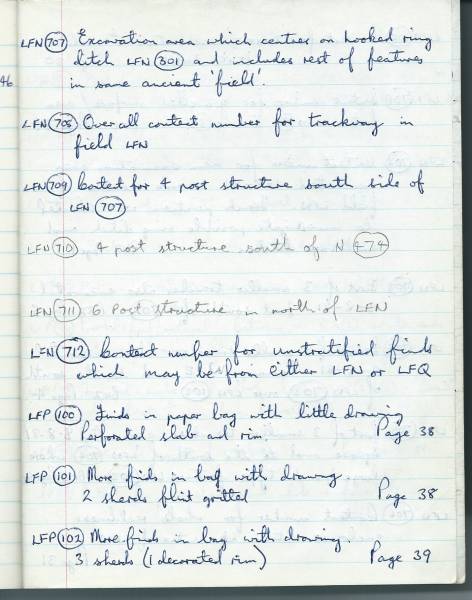 LFN 707 Excavation area which centres on hooked ring
ditch LFN 301 and includes rest of features
46
in same ancient 'field'.
LFN 708 Over all context number for trackway in
field LFN
LFN 709 Context for 4 post structure south side of
LFN 707
LFN 710 4 post structure south of N 474
LFN 711 6 Post structure in north of LFN
LFN 712 Context number for unstratified finds
which may be from either LFN or LFQ
LFP 100 Finds in paper bag with little drawing
Perforated slab and rim. Page 38
LFP 101 More finds in bag with drawing
2 sherds flint gritted Page 38
LFP 102 More finds in bag with drawing
3 sherds (1 decorated rim) Page 39